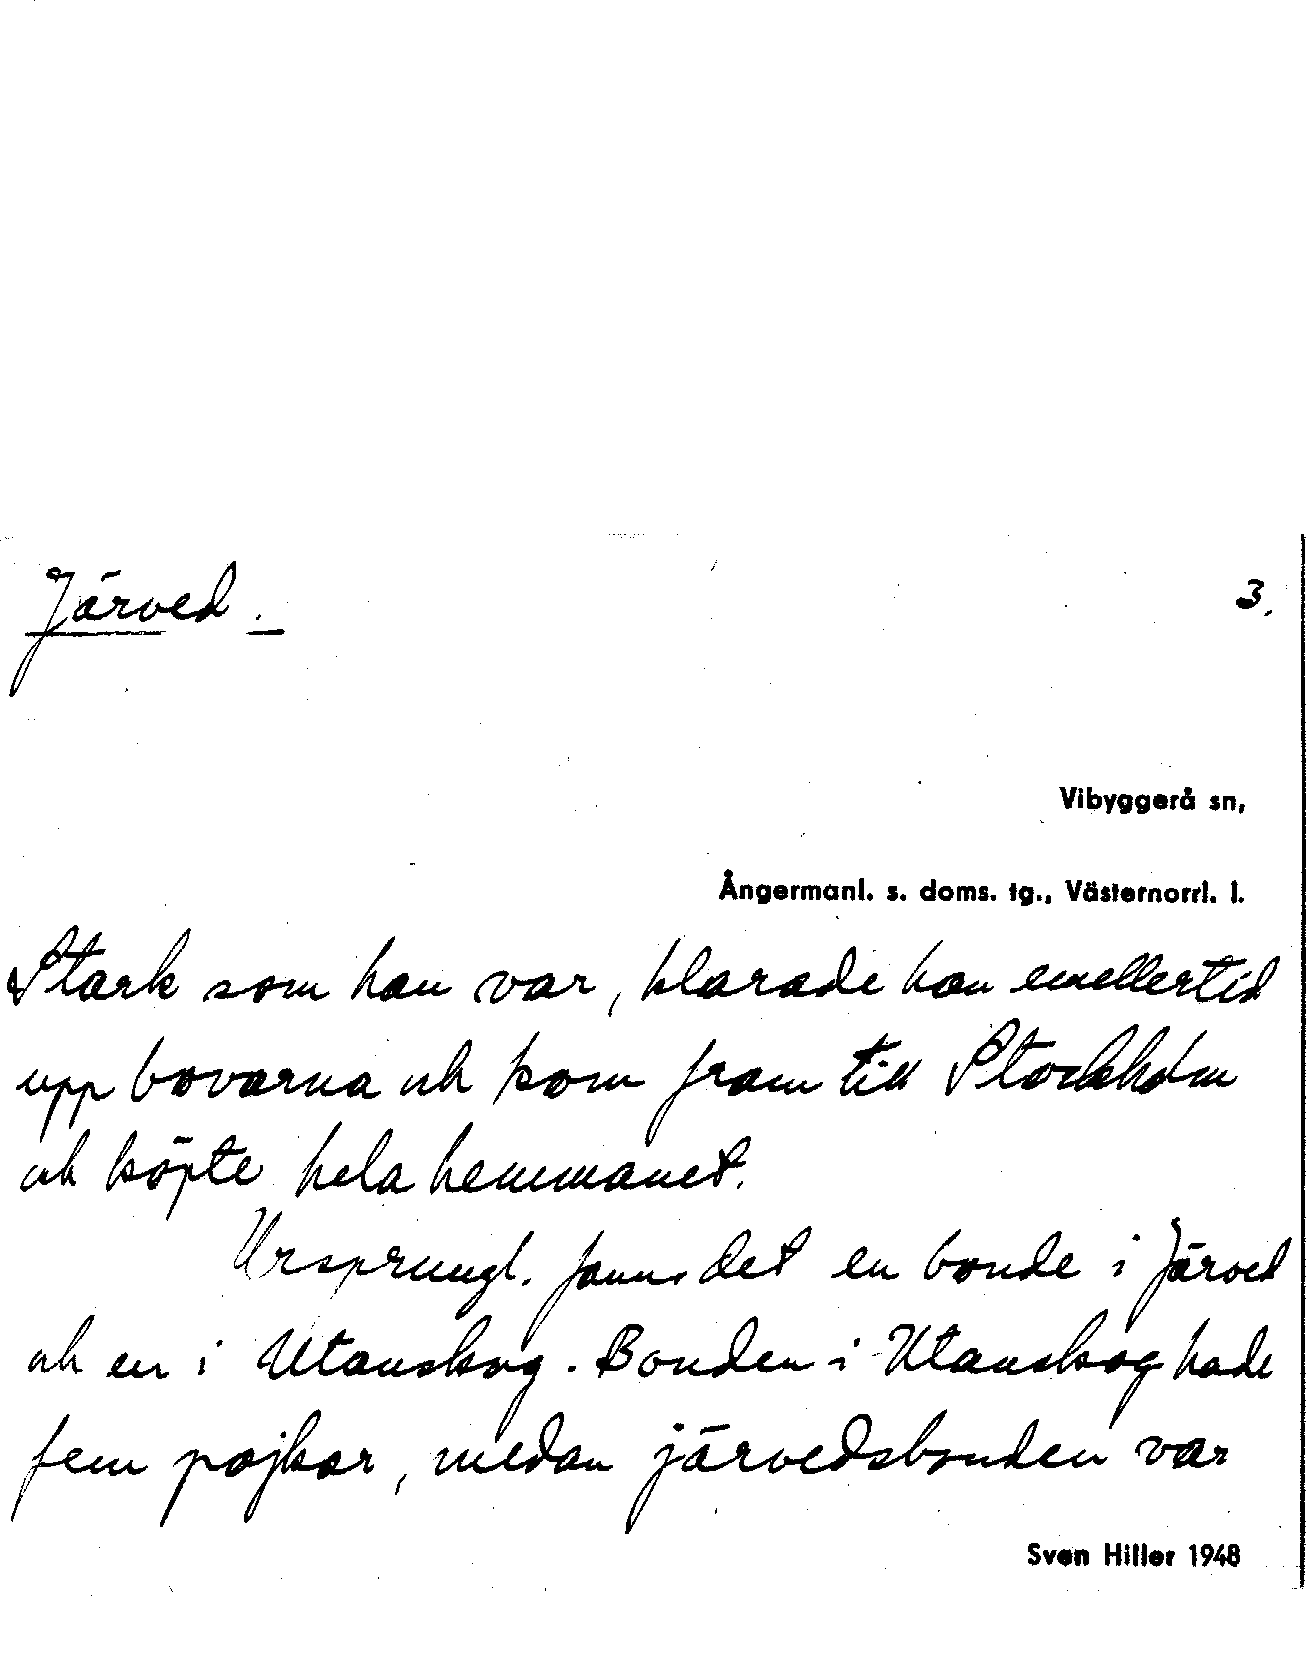 Järved.
3.
Vibyggerå sn,
Ångermanl. s. doms. tg., Västernorrl. l.
Stark som han var, klarade han emellertid
upp bovarna och kom fram till Stockholm
och köpte hela hemmanet.
Ursprungl. fanns det en bonde i Järved
och en i Utanskog. Bonden i Utanskog hade
fem pojkar, medan järvedsbonden var
Sven Hiller 1948